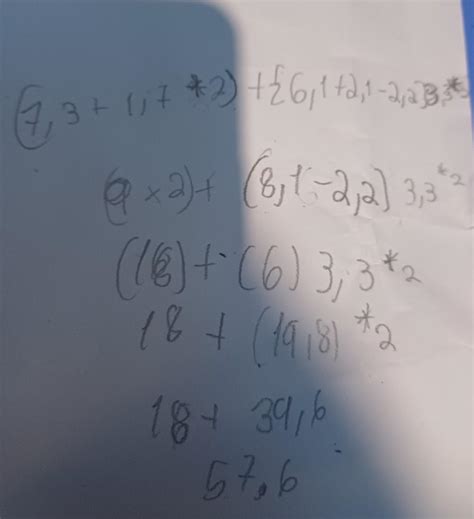 (7,3 + 1,7 *2) + {6,1+2,1-2,2}3,3*
(9 × 2) + (8,1 - 2,2) 3,3*2
(18) + (6) 3,3*2
18 + (19,8)*2
18 + 39,6
57,6